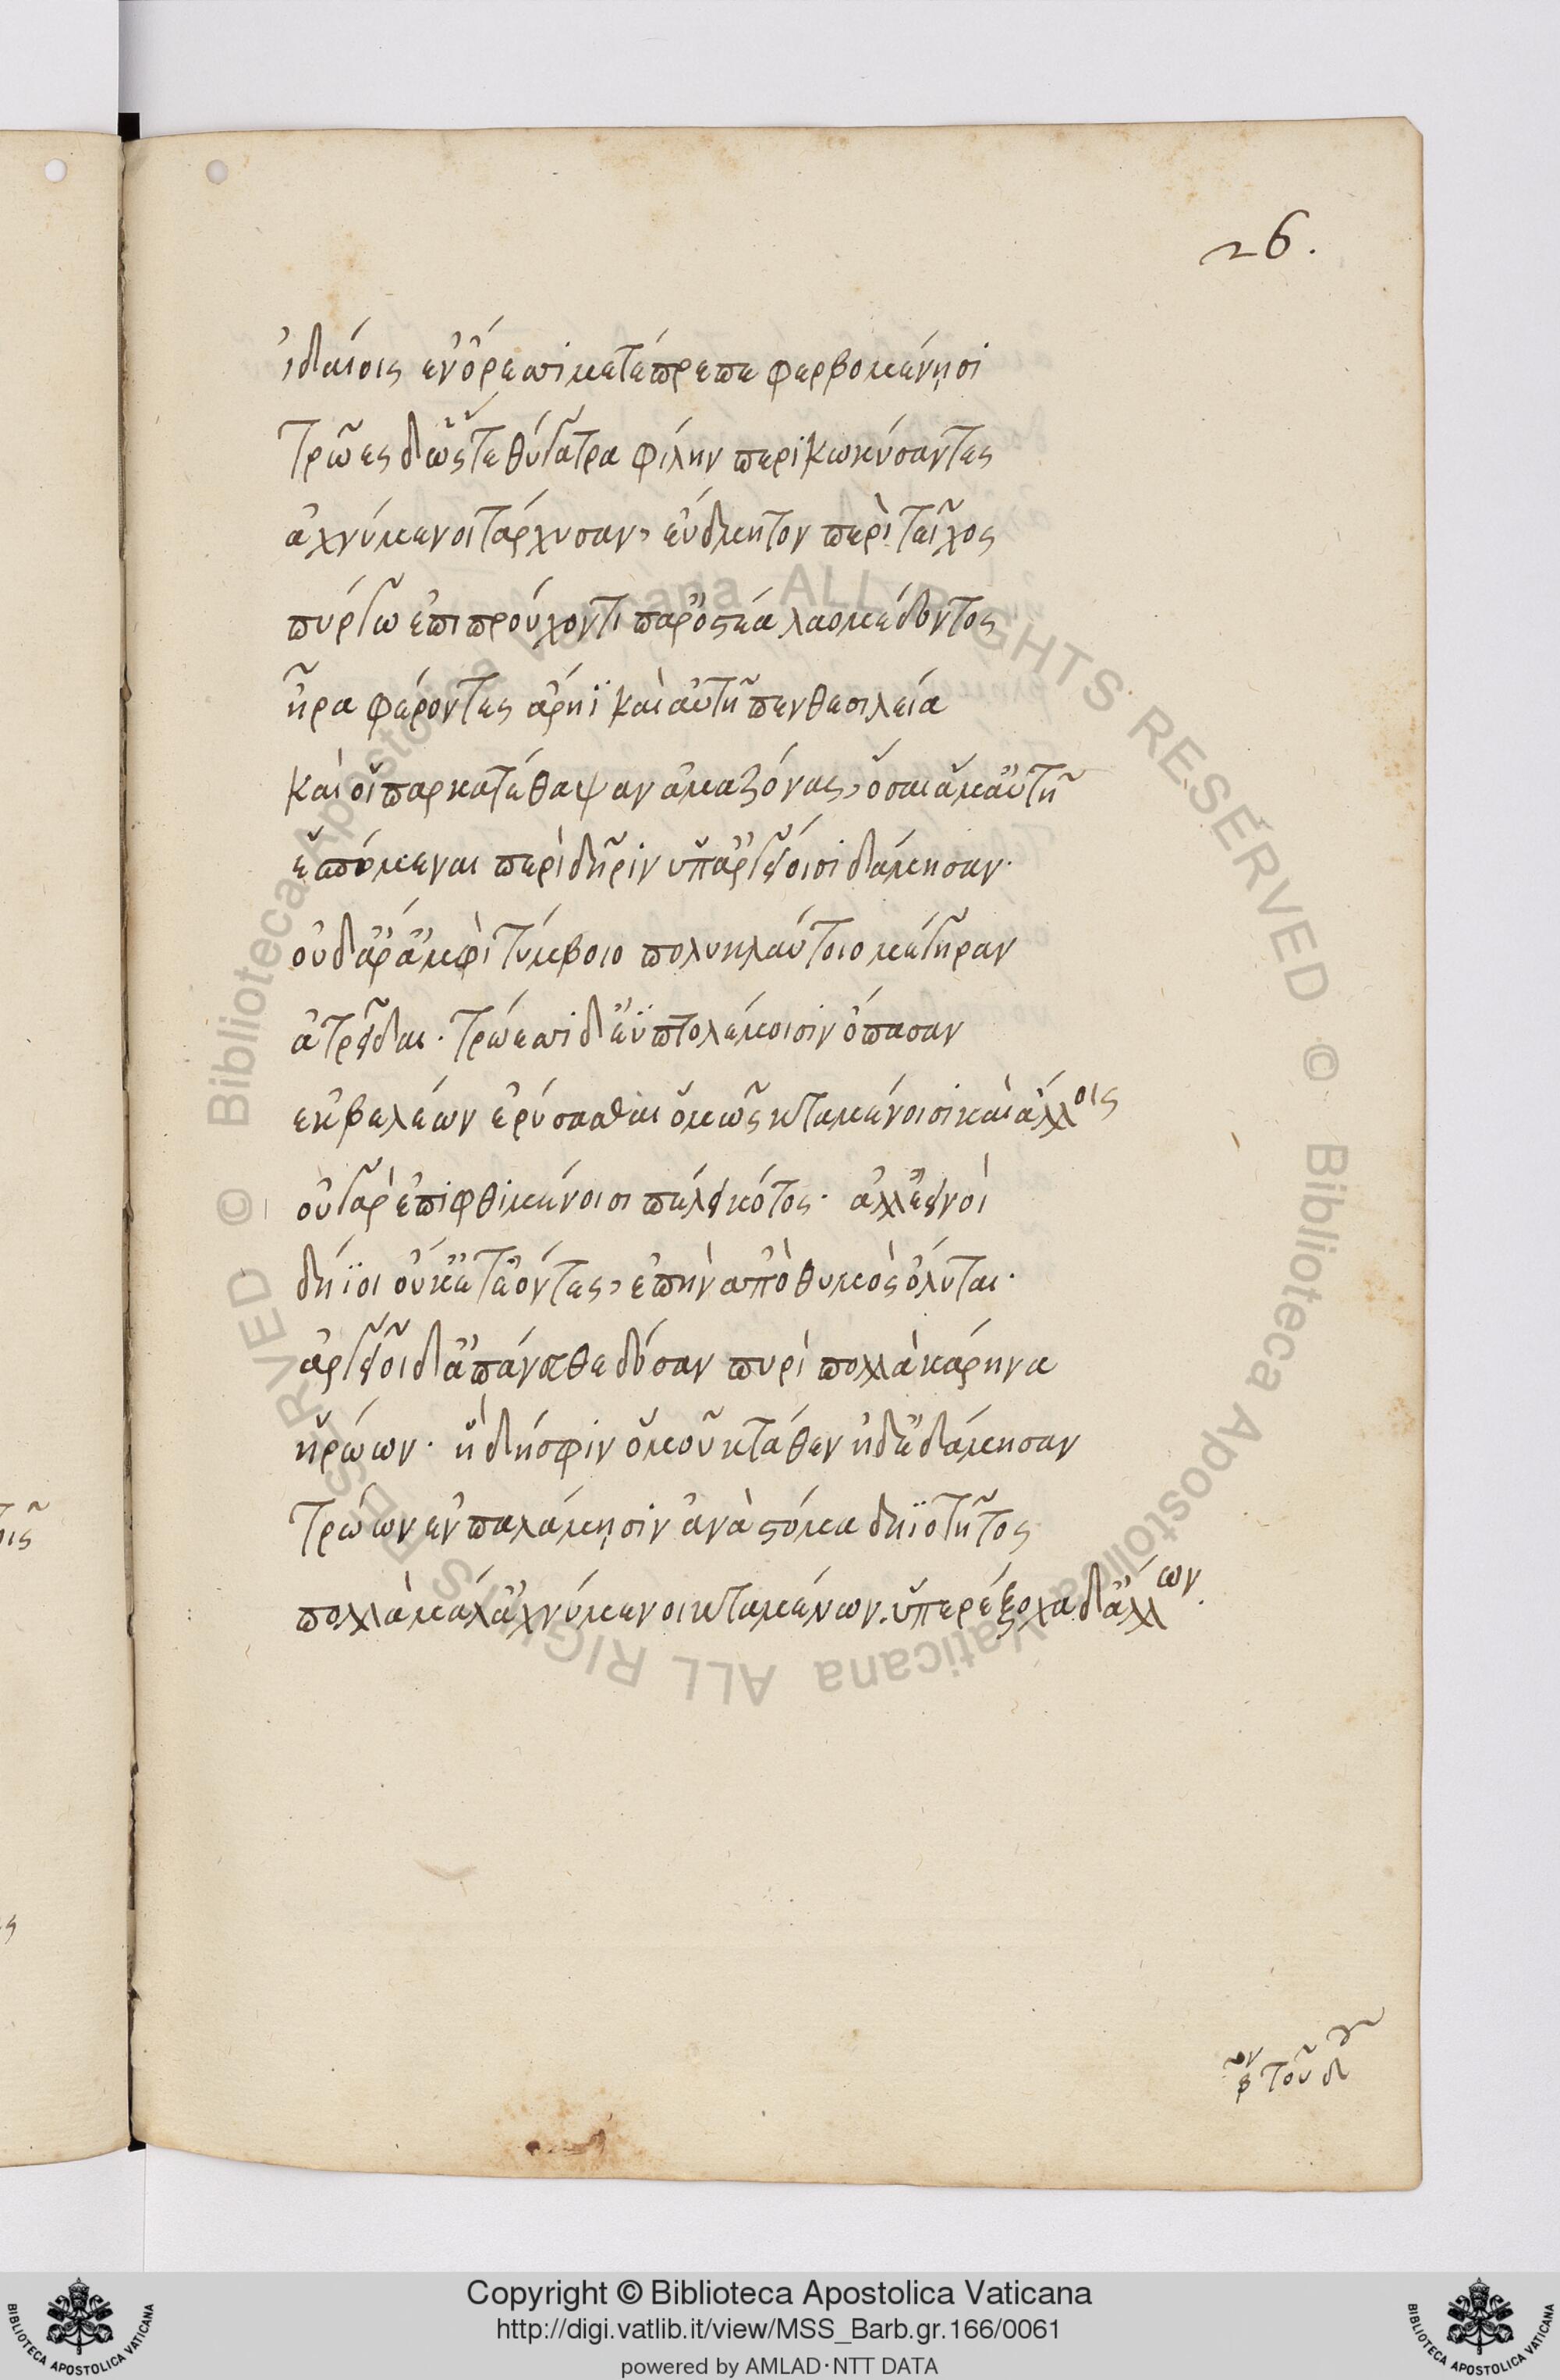 26.
ἰδαίοις ἐν ὄρεσσι μετέπρεπε φερβομένῃσι
Τρῶες δ' ὥς τε θύγατρα φίλην περικωκύσαντες
ἀχνύμενοι τάρχυσαν, ἐΰδμητον περὶ τεῖχος
πύργω ἐπιπρούχοντι παρ' ὀστέα λαομέδοντος
ἦρα φέροντες ἄρηϊ καὶ αὐτῆ πενθεσιλεία
καί οἱ παρκατέθαψαν ἀμαζόνας, ὅσαι ἅμ' αὐτῆ
ἑσπόμεναι περὶ δῆριν ὑπ' ἀργείοισι δάμησαν·
οὐ δ' ἄρ' ἀμφὶ τύμβοιο πολυκλαύτοιο μέγηραν
ἀτρεῖδαι· Τρώεσσι δ' ἐϋπτολέμοισιν ὄπασαν
ἐκ βελέων ἐρύσασθαι ὁμῶς κταμένοισι καὶ ἄλλοις
οὐ γὰρ ἐπὶ φθιμένοισι πέλει κότος· ἀλλ' ἐλεεινοὶ
δήϊοι οὐκ ἔτ' ἐόντες, ἐπὴν ἀπὸ θυμὸς ὄληται·
ἀργεῖοι δ' ἀπάνευθε δόσαν πυρὶ πολλὰ κάρηνα
ἡρώων· οἳ δή σφιν ὁμοῦ κτάθεν ἠδ' ἐδάμησαν
Τρώων ἐν παλάμῃσιν ἀνὰ στόμα δηϊοτῆτος
πολλὰ μάλ' ἀχνύμενοι κταμένων. ὑπερέξοχα δ' ἄλλων.
Copyright © Biblioteca Apostolica Vaticana
http://digi.vatlib.it/view/MSS_Barb.gr.166/0061
powered by AMLAD·NTT DATA